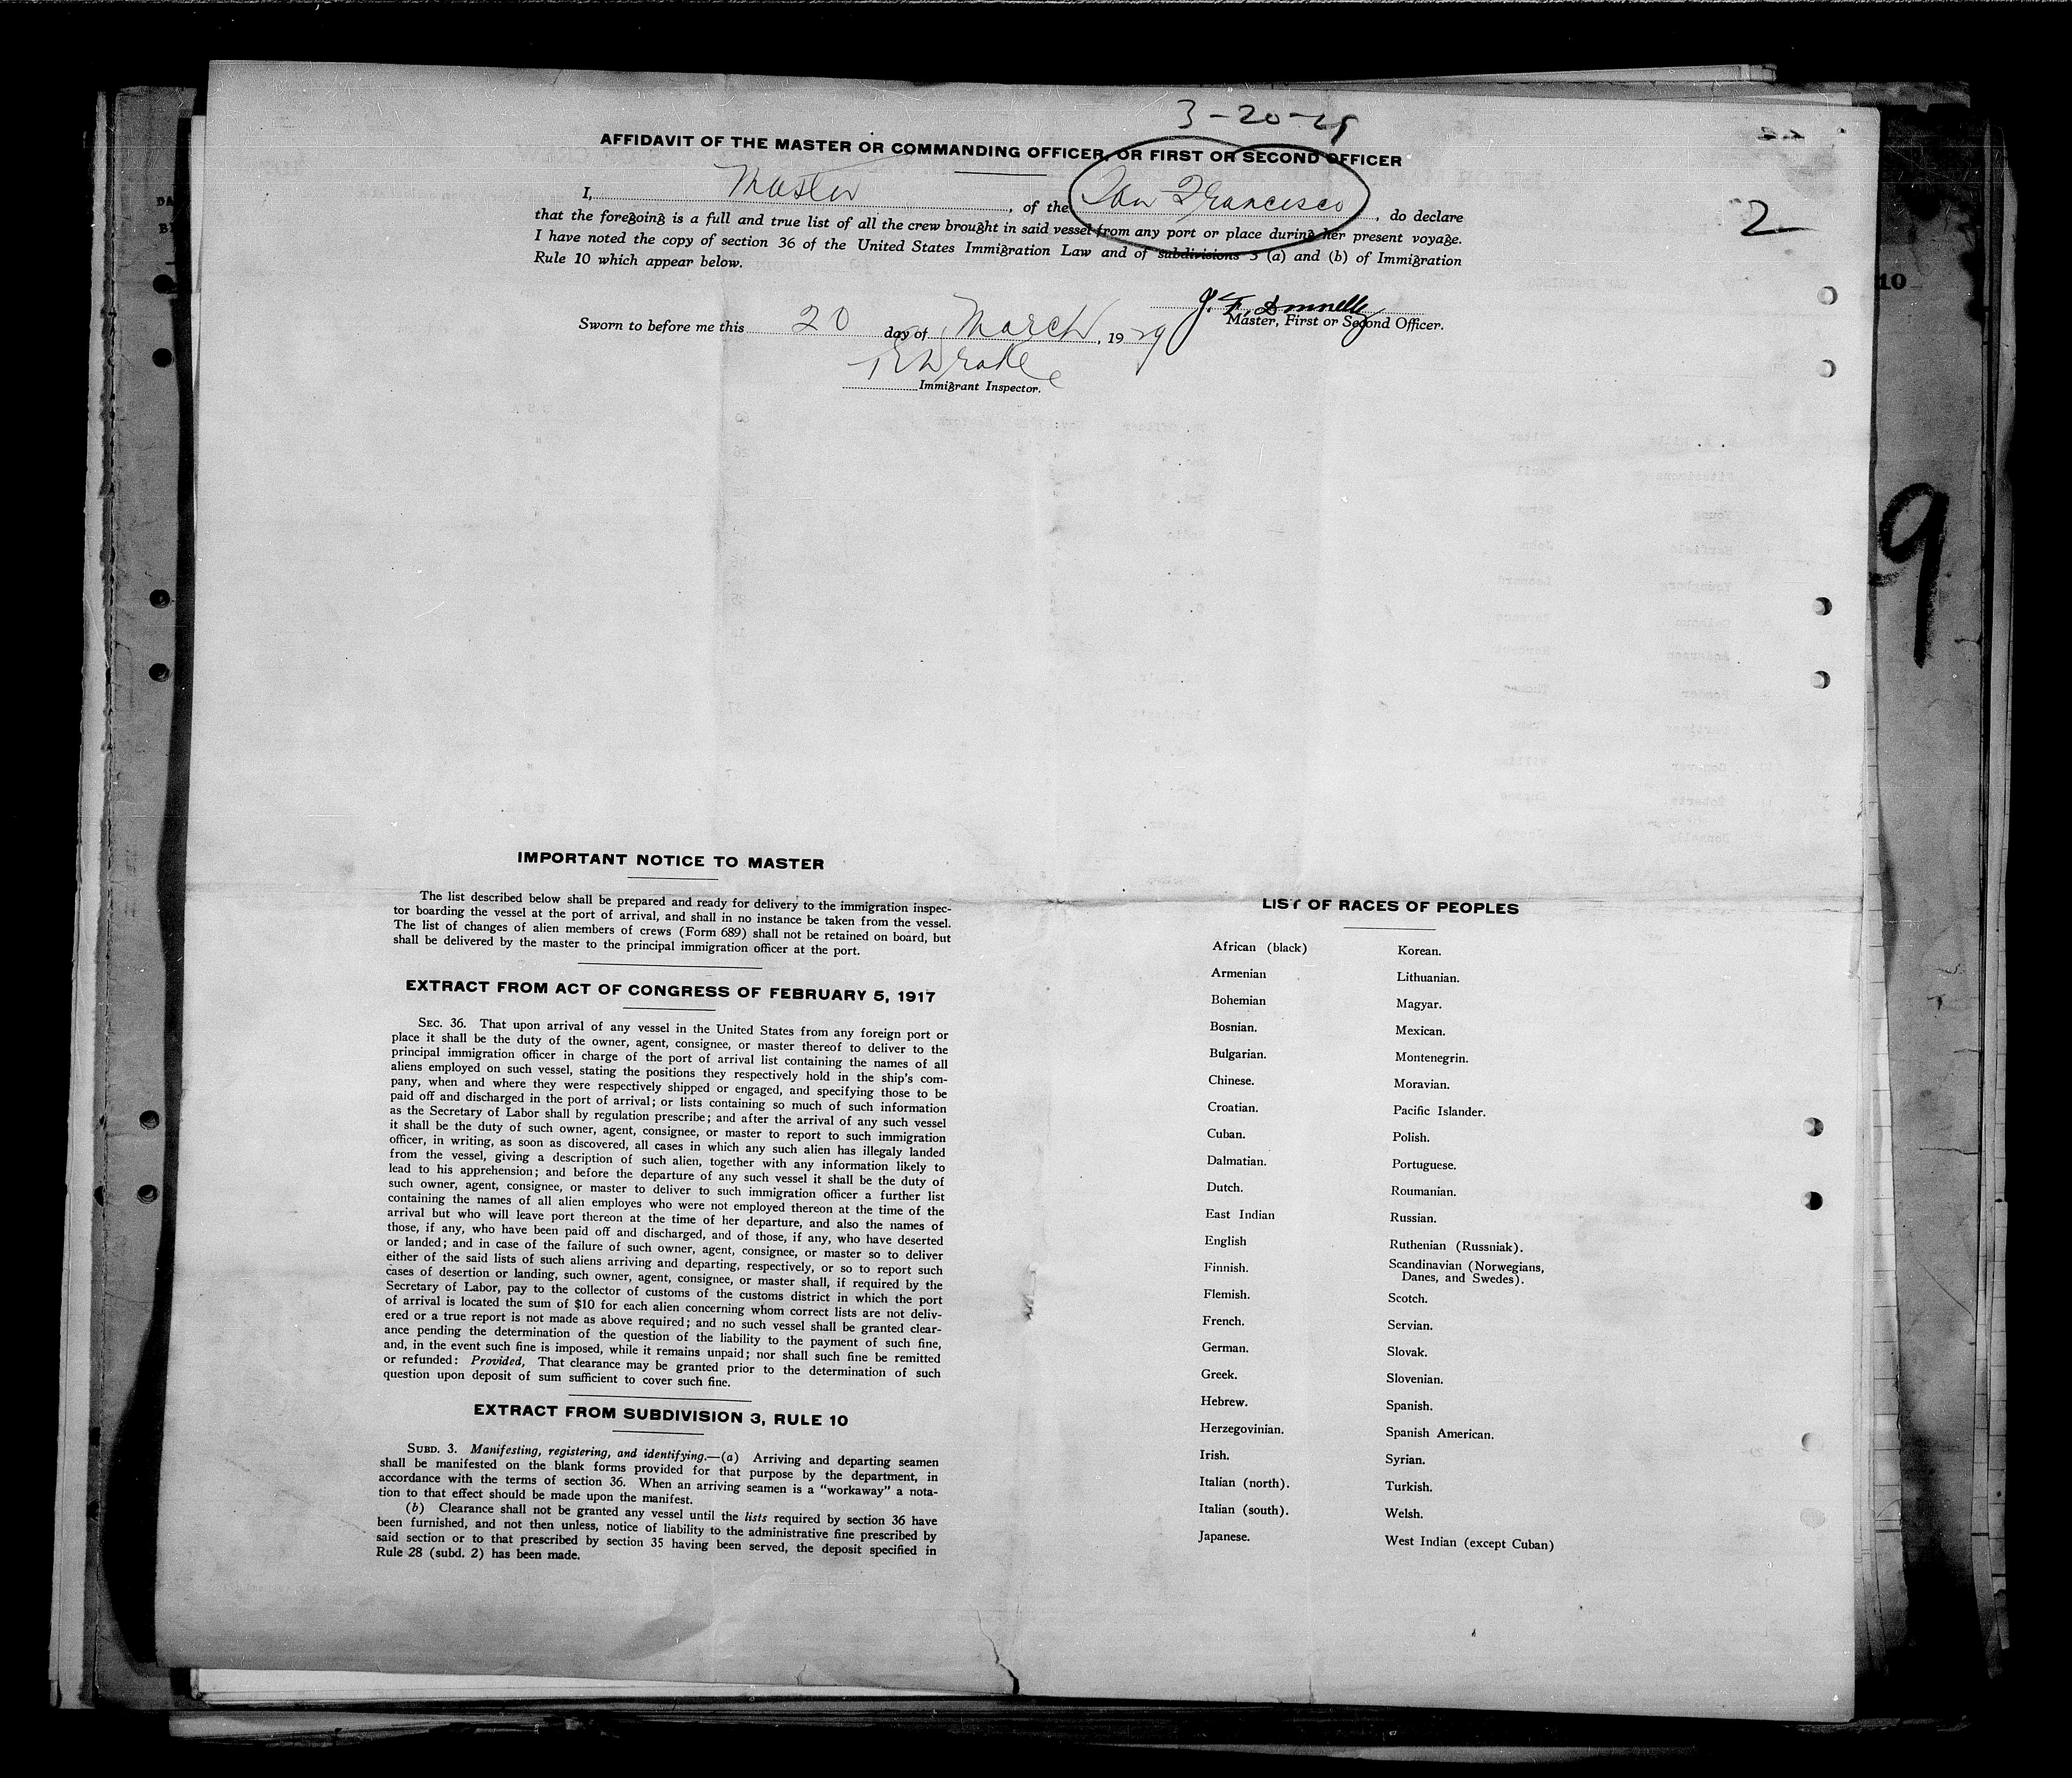 3-20-29
AFFIDAVIT OF THE MASTER OR COMMANDING OFFICER, OR FIRST OR SECOND OFFICER
I, Master, of the San Francisco, do declare
that the foregoing is a full and true list of all the crew brought in said vessel from any port or place during her present voyage.
I have noted the copy of section 36 of the United States Immigration Law and of subdivisions 3 (a) and (b) of Immigration
Rule 10 which appear below.
2
10
J. F. Donnelly
Master, First or Second Officer.
Sworn to before me this 20 day of March, 1929
Drake
Immigrant Inspector.
9
IMPORTANT NOTICE TO MASTER
The list described below shall be prepared and ready for delivery to the immigration inspec-
tor boarding the vessel at the port of arrival, and shall in no instance be taken from the vessel.
The list of changes of alien members of crews (Form 689) shall not be retained on board, but
shall be delivered by the master to the principal immigration officer at the port.
EXTRACT FROM ACT OF CONGRESS OF FEBRUARY 5, 1917
SEC. 36. That upon arrival of any vessel in the United States from any foreign port or
place it shall be the duty of the owner, agent, consignee, or master thereof to deliver to the
principal immigration officer in charge of the port of arrival list containing the names of all
aliens employed on such vessel, stating the positions they respectively hold in the ship's com-
pany, when and where they were respectively shipped or engaged, and specifying those to be
paid off and discharged in the port of arrival; or lists containing so much of such information
as the Secretary of Labor shall by regulation prescribe; and after the arrival of any such vessel
it shall be the duty of such owner, agent, consignee, or master to report to such immigration
officer, in writing, as soon as discovered, all cases in which any such alien has illegaly landed
from the vessel, giving a description of such alien, together with any information likely to
lead to his apprehension; and before the departure of any such vessel it shall be the duty of
such owner, agent, consignee, or master to deliver to such immigration officer a further list
containing the names of all alien employes who were not employed thereon at the time of the
arrival but who will leave port thereon at the time of her departure, and also the names of
those, if any, who have been paid off and discharged, and of those, if any, who have deserted
or landed; and in case of the failure of such owner, agent, consignee, or master so to deliver
either of the said lists of such aliens arriving and departing, respectively, or so to report such
cases of desertion or landing, such owner, agent, consignee, or master shall, if required by the
Secretary of Labor, pay to the collector of customs of the customs district in which the port
of arrival is located the sum of $10 for each alien concerning whom correct lists are not deliv-
ered or a true report is not made as above required; and no such vessel shall be granted clear-
ance pending the determination of the question of the liability to the payment of such fine,
and, in the event such fine is imposed, while it remains unpaid; nor shall such fine be remitted
or refunded: Provided, That clearance may be granted prior to the determination of such
question upon deposit of sum sufficient to cover such fine.
EXTRACT FROM SUBDIVISION 3, RULE 10
SUBD. 3. Manifesting, registering, and identifying.—(a) Arriving and departing seamen
shall be manifested on the blank forms provided for that purpose by the department, in
accordance with the terms of section 36. When an arriving seamen is a "workaway" a nota-
tion to that effect should be made upon the manifest.
(b) Clearance shall not be granted any vessel until the lists required by section 36 have
been furnished, and not then unless, notice of liability to the administrative fine prescribed by
said section or to that prescribed by section 35 having been served, the deposit specified in
Rule 28 (subd. 2) has been made.
LIST OF RACES OF PEOPLES
African (black)
Armenian
Bohemian
Bosnian.
Bulgarian.
Chinese.
Croatian.
Cuban.
Dalmatian.
Dutch.
East Indian
English
Finnish.
Flemish.
French.
German.
Greek.
Hebrew.
Herzegovinian.
Irish.
Italian (north).
Italian (south).
Japanese.
Korean.
Lithuanian.
Magyar.
Mexican.
Montenegrin.
Moravian.
Pacific Islander.
Polish.
Portuguese.
Roumanian.
Russian.
Ruthenian (Russniak).
Scandinavian (Norwegians,
Danes, and Swedes).
Scotch.
Servian.
Slovak.
Slovenian.
Spanish.
Spanish American.
Syrian.
Turkish.
Welsh.
West Indian (except Cuban)